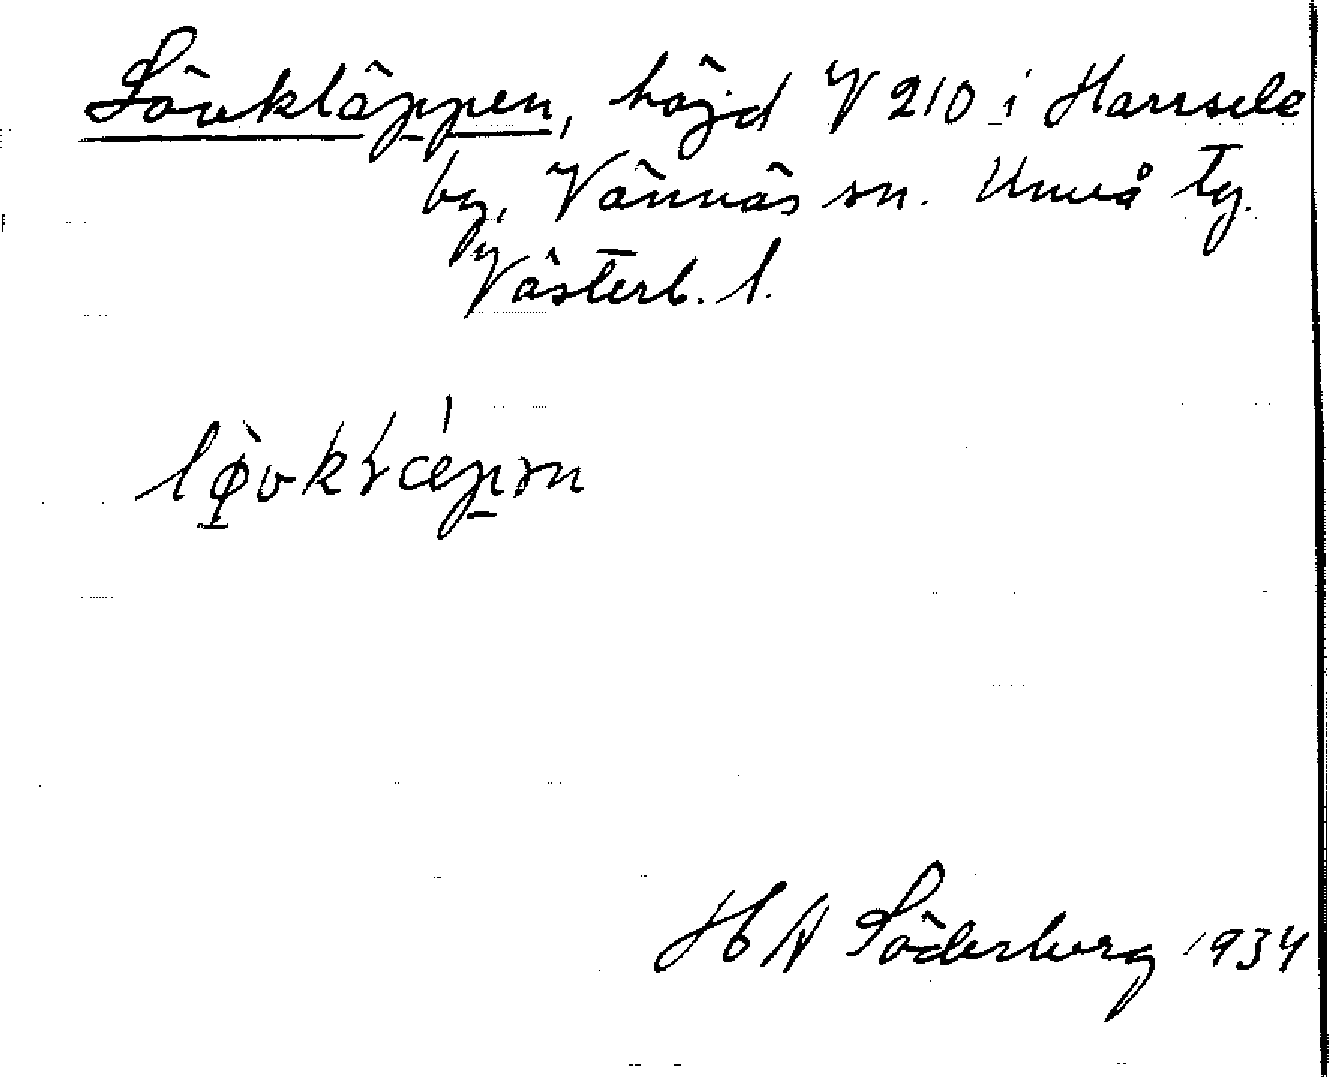 Lövkläppen, höjd V 210 i Harrsele
by, Vännäs sn. Umeå tg.
Västerb. l.
HA Söderberg 1934